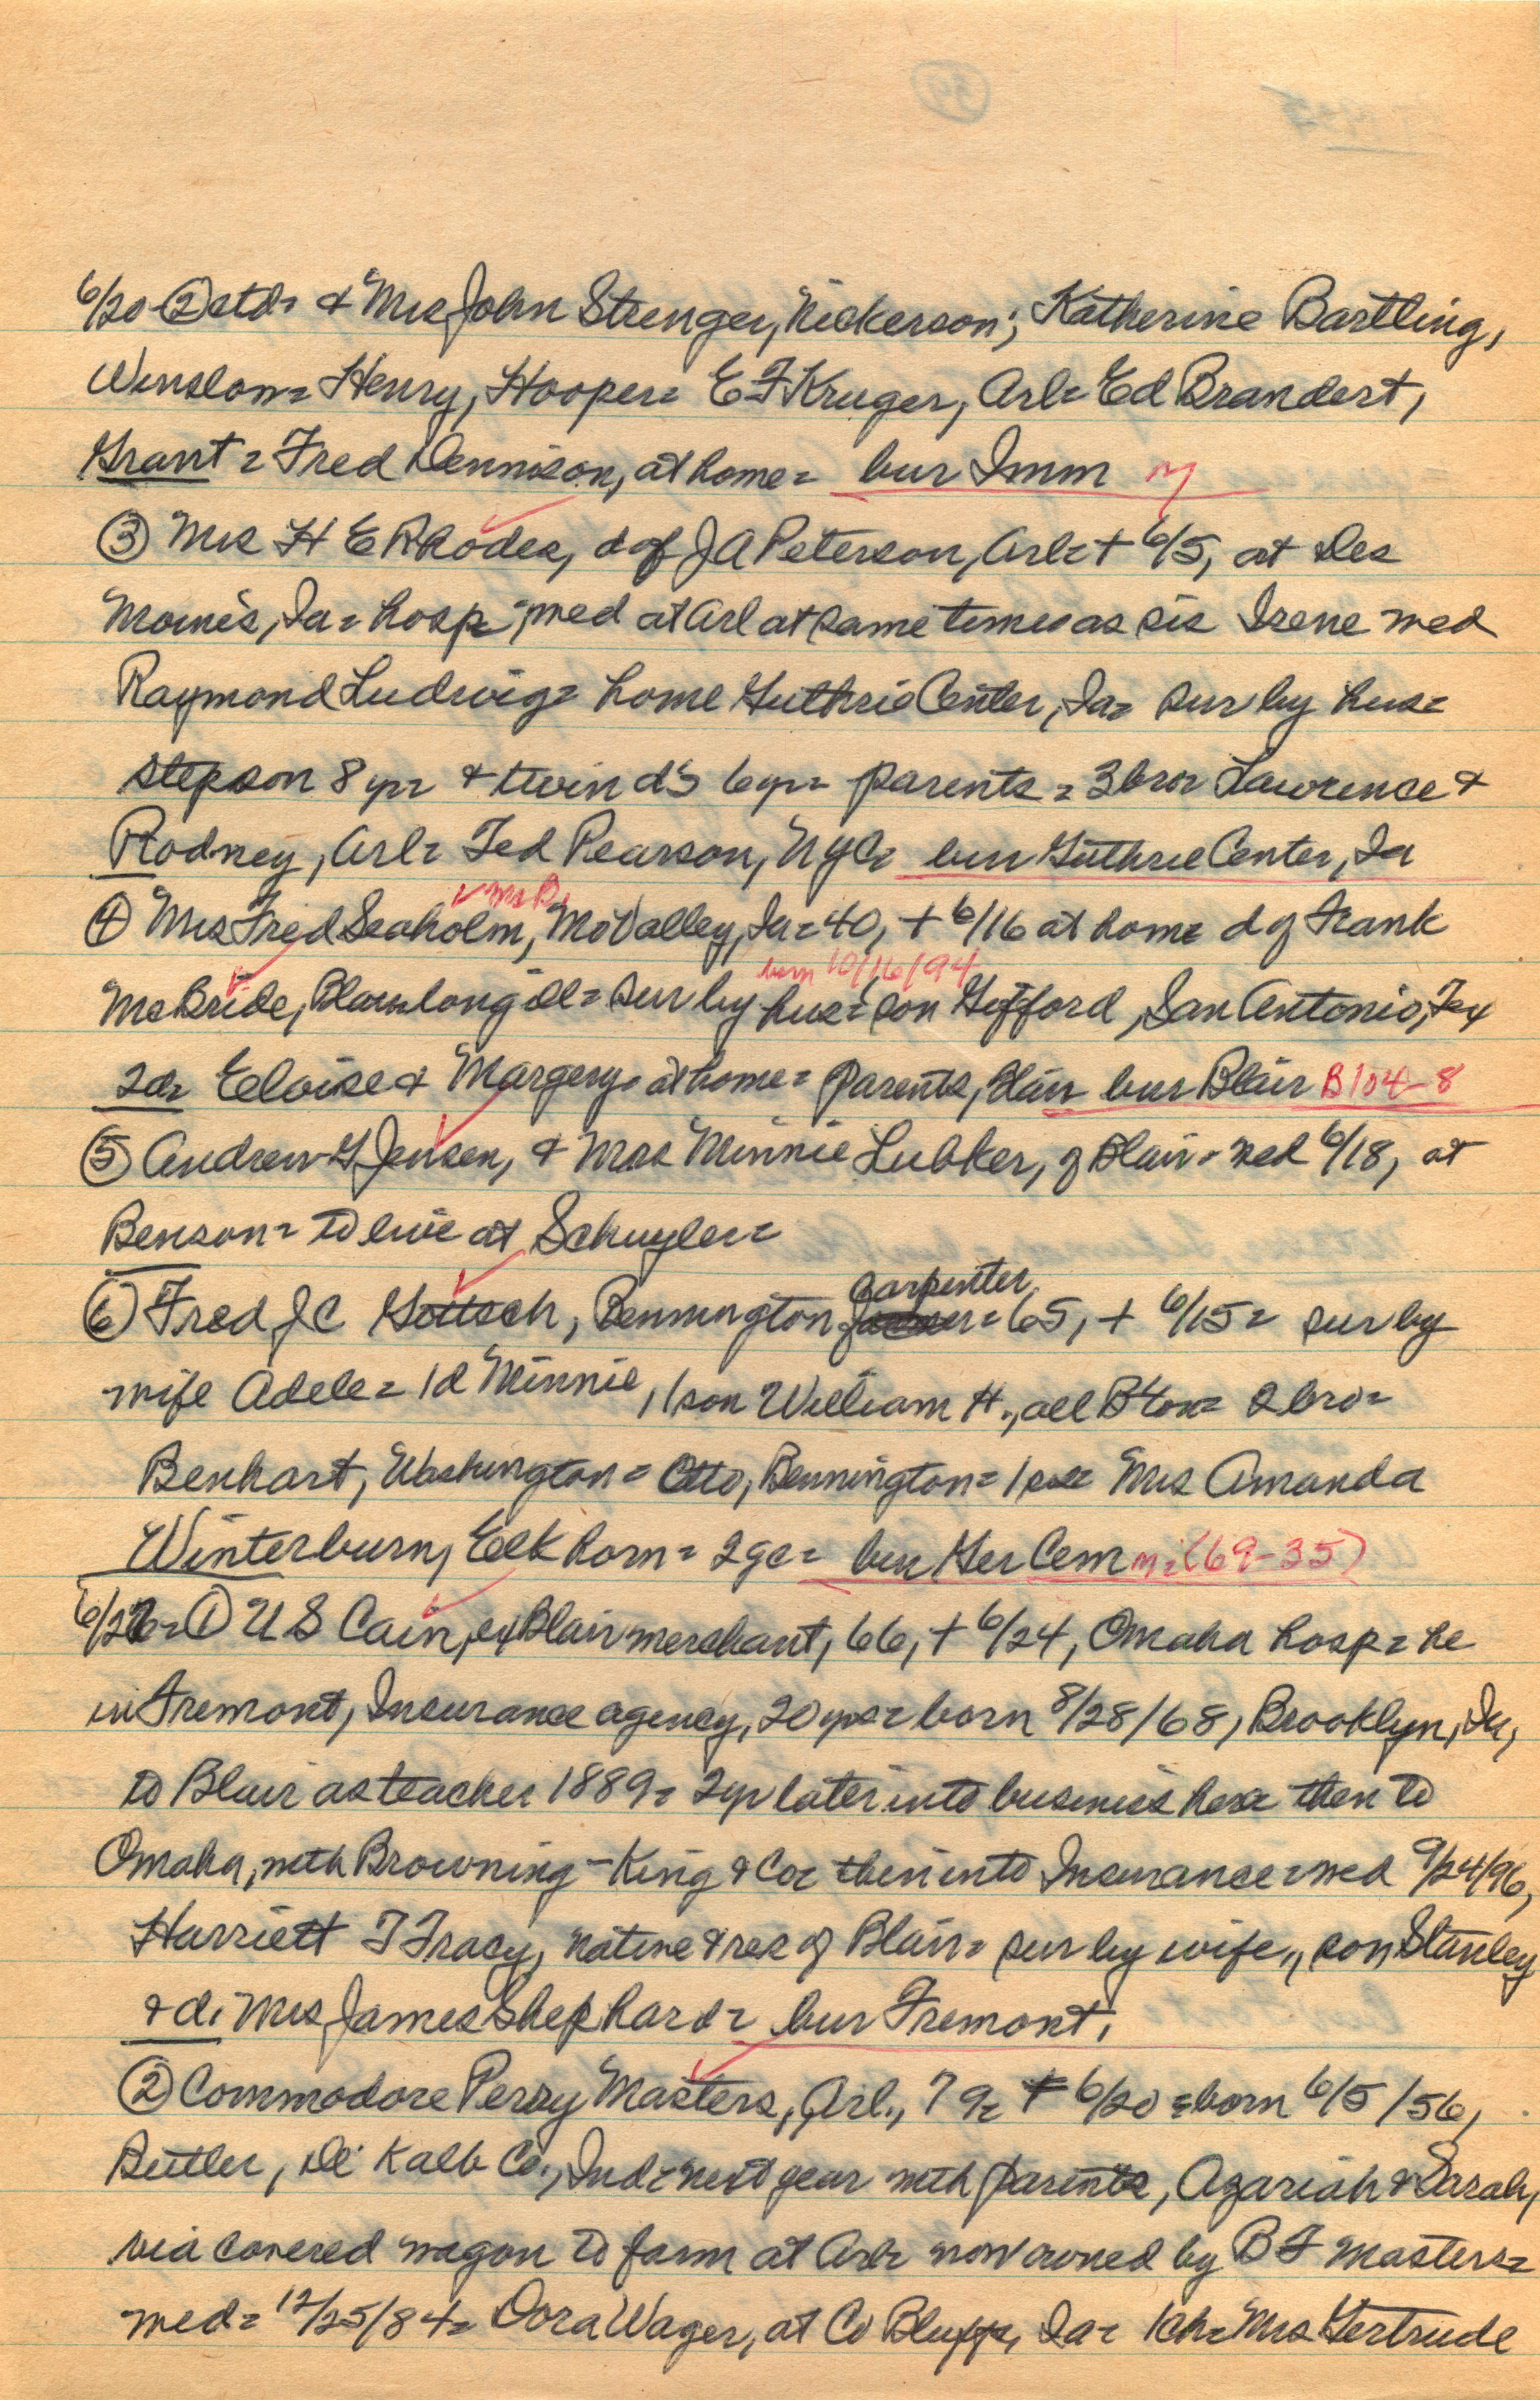 6/20 ② ctd= & Mrs John Strenger, Nickerson; Katherine Bartling,
Winslow= Henry, Hooper= E F Kruger, Arl= Ed Brandert,
Grant= Fred Dennison, at home= bur Imm M
③ Mrs H E Rhodes, d of J A Peterson, Arl= + 6/5, at Des
Moines, Ia= hosp= med at Arl at same time as sis Irene med
Raymond Ludwig= home Guthrie Center, Ia= sur by hus=
stepson 8 yr= & twin d's 6yr= parents= 3 bro= Lawrence &
Rodney, Arl= Ted Pearson, NYC= bur Guthrie Center, Ia
✓ Mc B.
④ Mrs Fred Seaholm, Mo Valley, Ia= 40, + 6/16 at home d of Frank
born 10/16/94
McBride, Blair long ill= sur by hus= son Gifford, San Antonio, Tex
2d= Eloise & Margery= at home= parents, Blair bur Blair B104-8
⑤ Andrew G Jensen, & Mrs Minnie Lubker, of Blair= med 6/18, at
Benson= to live at Schuyler=
Carpenter
⑥ Fred J C Gottsch, Bennington = 65, + 6/15= sur by
wife Adele= 1d Minnie, 1 son William H., all B'ton= 2 bro=
Benhart, Washington= Otto, Bennington= 1 sis= Mrs Amanda
Winterburn, Elkhorn= 2gc= bur Ger Cem M=(69-35)
6/26= ① U S Cain, ex Blair merchant, 66, + 6/24, Omaha hosp= he
in Fremont, Insurance agency, 20 yrs= born 8/28/68, Brooklyn, Ia,
to Blair as teacher 1889= 2yr later into business here then to
Omaha, with Browning-King & Co= then into Insurance= med 9/24/96,
Harriett T Tracy, native & res of Blair= sur by wife, son Stanley
& d. Mrs James Shephard= bur Fremont,
② Commodore Perry Masters, Arl., 79= + 6/20= born 6/5/56,
Butler, De Kalb Co., Ind= next year with parents, Azariah & Sarah,
via covered wagon to farm at Arl= now owned by B F Masters=
med= 12/25/84= Dora Wager, at Co Bluffs, Ia= 1ch= Mrs Gertrude